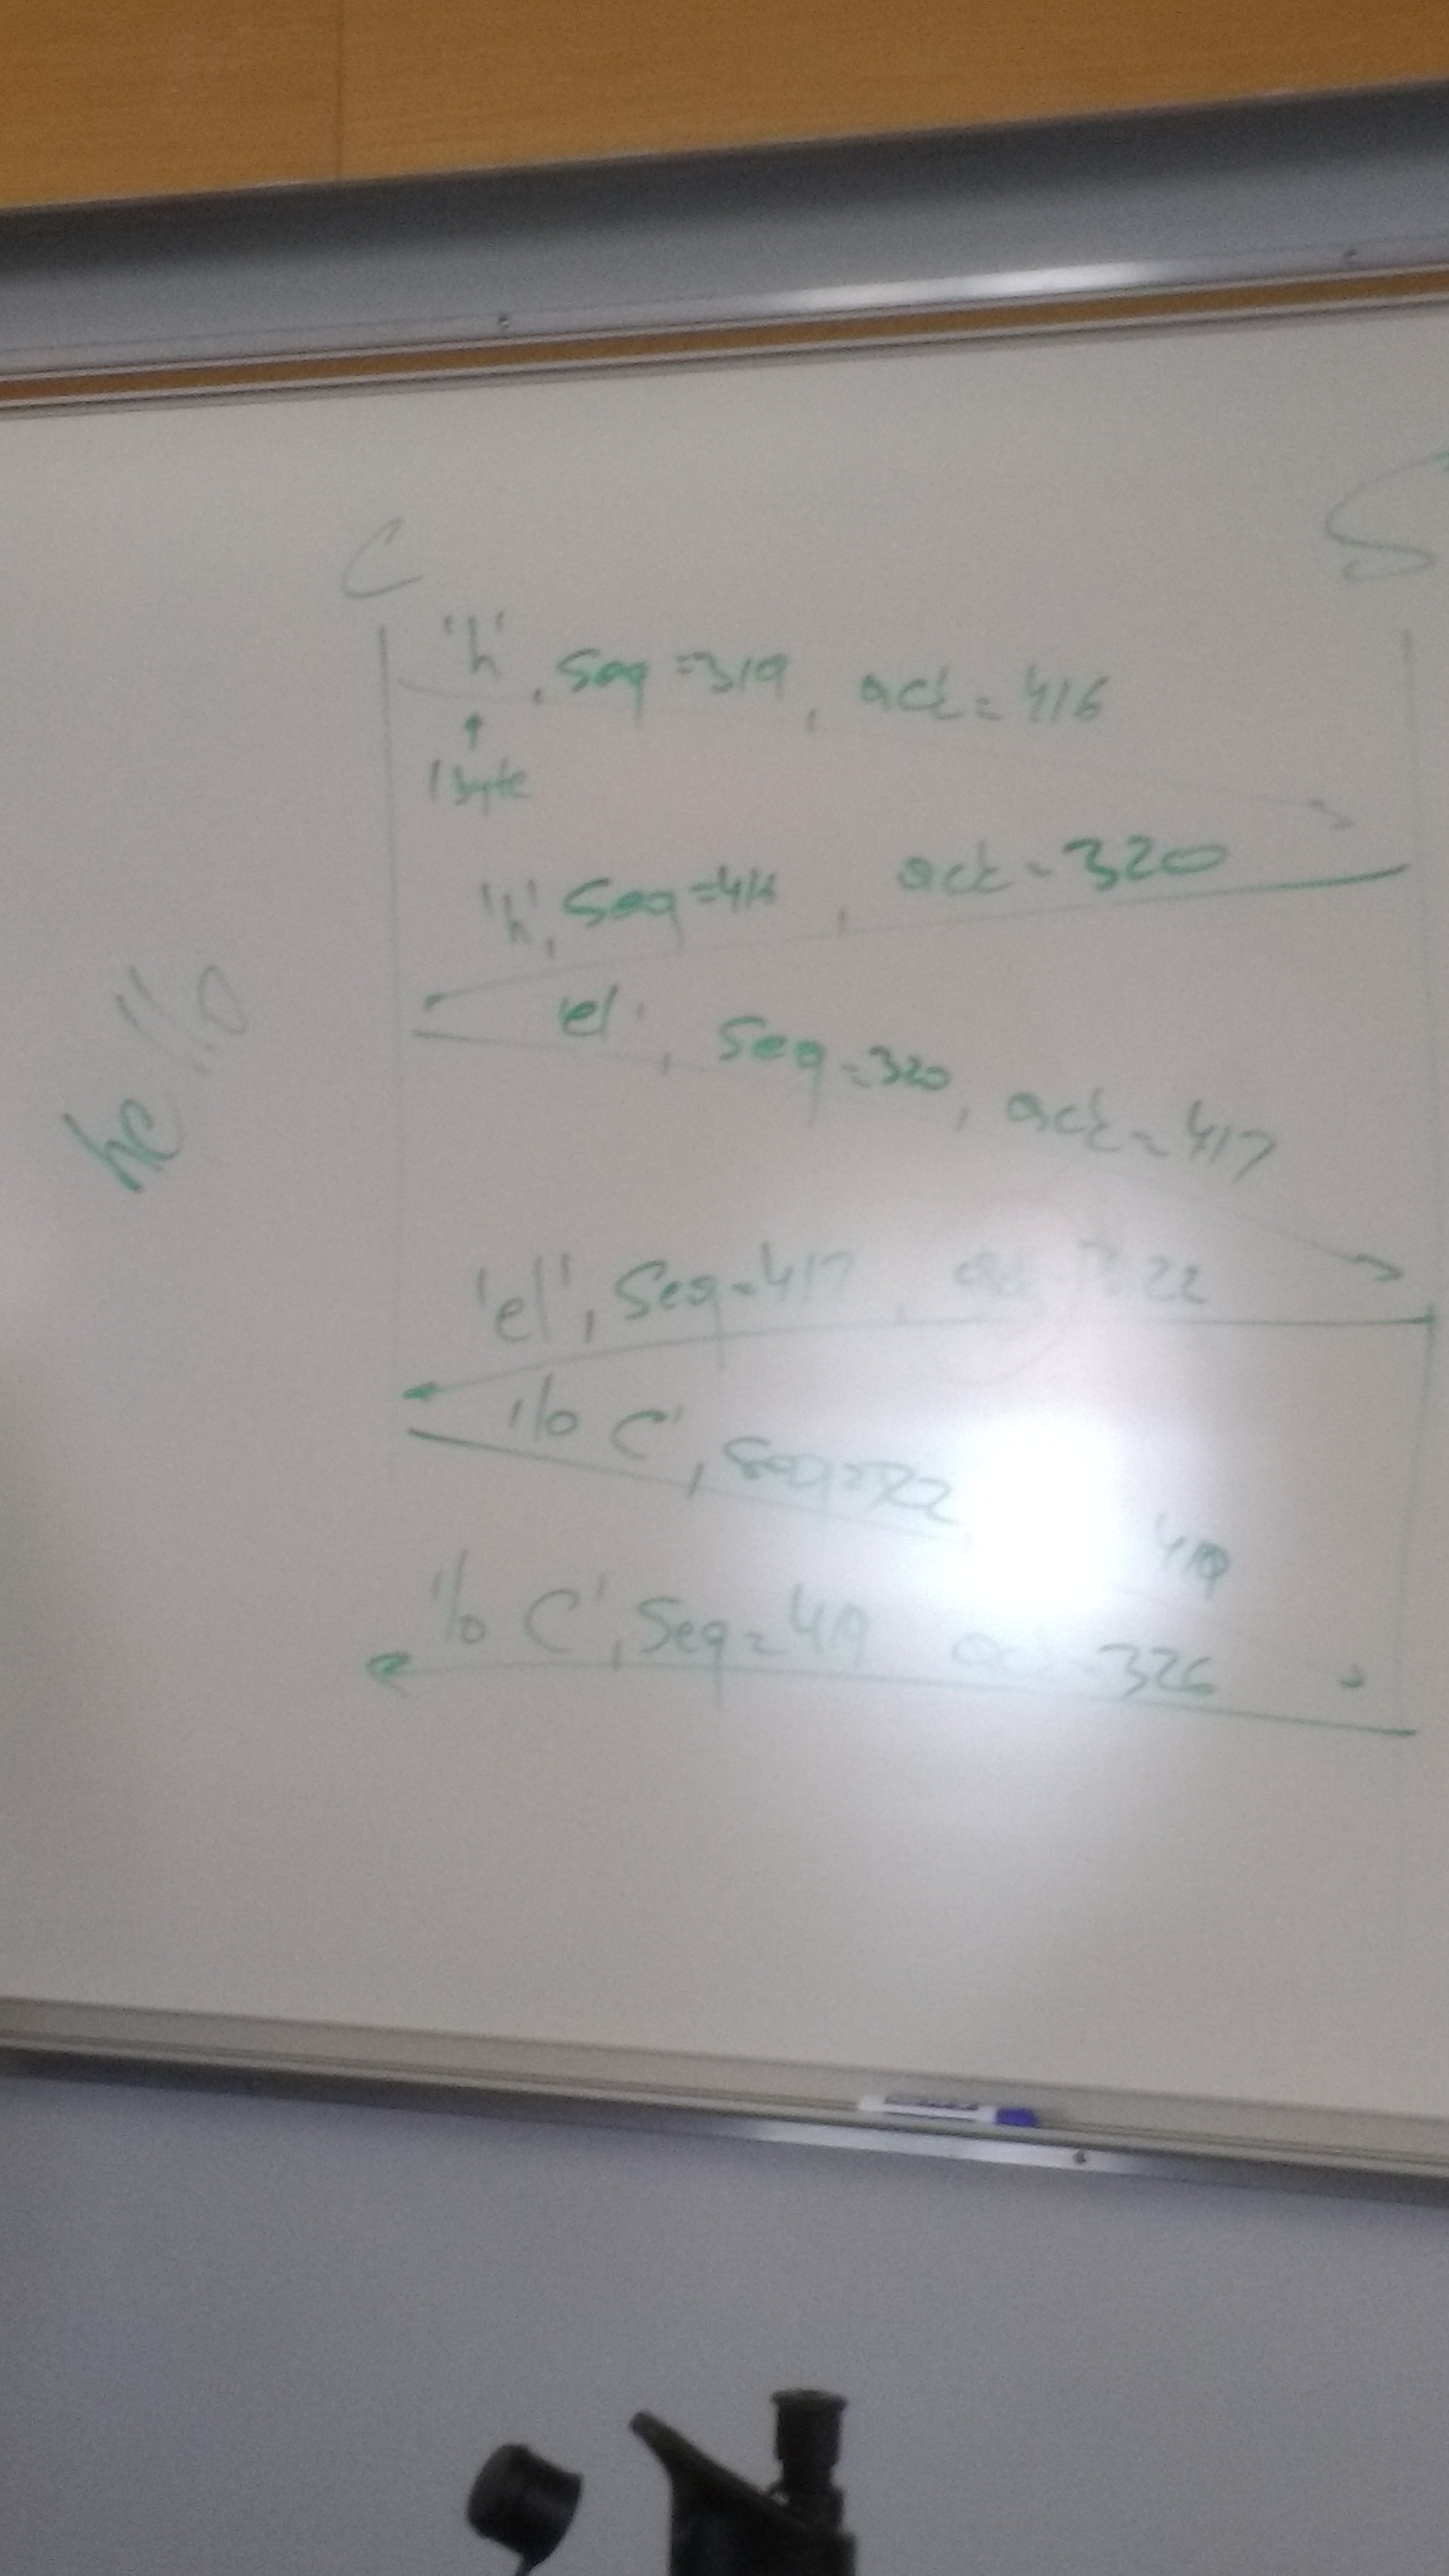 C S
'h', Seq=319, ack=416
1 byte
'h', Seq=416, ack=320
'el', Seq=320, ack=417
hello
'el', Seq=417, 322
'lo C', Seq=322, 419
'lo C', Seq=419 ack=326